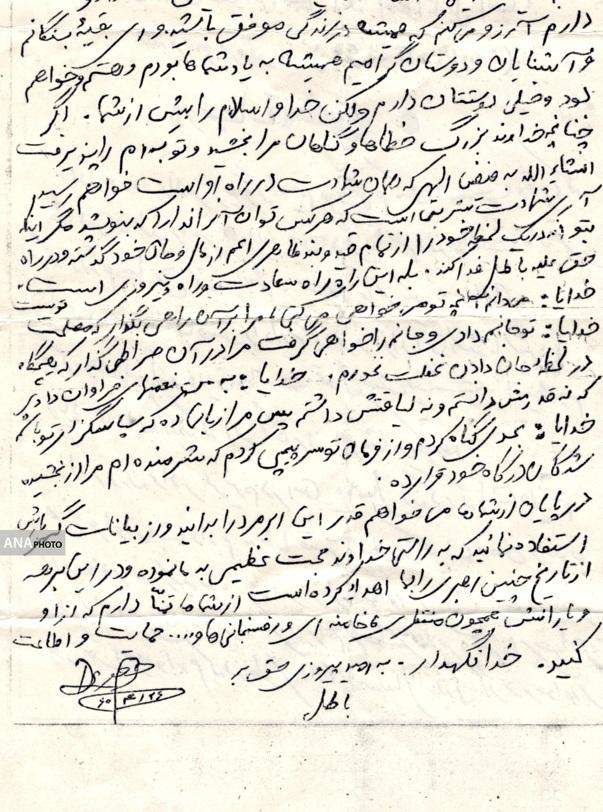 دارم آرزو می‌کنم که همیشه در زندگی موفق باشید. و ای بقیهٔ بستگانم
و آشنایان و دوستان گرامیم همیشه به یاد شماها بودم و هستم و خواهم
بود و خیلی دوستتان دارم ولکن خدا و اسلام را بیش از شما. اگر
چنانچه خداوند بزرگ خطاها و گناهان مرا بخشید و توبه‌ام را پذیرفت
انشاء الله به فیض الهی که همان شهادت در راه او است خواهم رسید
آری شهادت شربتی است که هر کس توان آنرا ندارد که بنوشد مگر اینکه
بتواند در یک لحظه خود را از تمام قید و بند ظاهری اعم از مال و جان خود گذشته و در راه
حق علیه باطل فدا کند. بله این راه راه سعادت و راه پیروزی است.
خدایا: می‌دانم آنچه تو می‌خواهی می‌کنی اما مرا بر آن راهی بگذار که مصلحت توست
خدایا: تو جانم دادی و جانم را خواهی گرفت مرا در آن صراطی گذار که هیچگاه
در لحظه جان دادن غفلت نخورم. خدایا: به من نعمتهای فراوان دادی
که نه قدرش دانستم و نه لیاقتش داشتم پس مرا زبان ده که سپاسگزار تو باشم
خدایا: عمری گناه کردم و از فرمان تو سرپیچی کردم که شرمنده‌ام مرا از بخشیده
شدگان درگاه خود قرار ده.
در پایان از شماها می‌خواهم قدر این ابرمرد را بدانید و از بیانات گهربارش
استفاده نمائید که به راستی خداوند محبت عظیمی به ما نموده و در این برهه
از تاریخ چنین رهبری را بما اهدا کرده است از شماها تمنّا دارم که از او
و یارانش همچون منتظری‌ها خامنه‌ای و رفسنجانی‌ها و.... حمایت و اطاعت
کنید. خدا نگهدار. به امید پیروزی حق بر
باطل
۶۰/۳/۲۶
ANA PHOTO